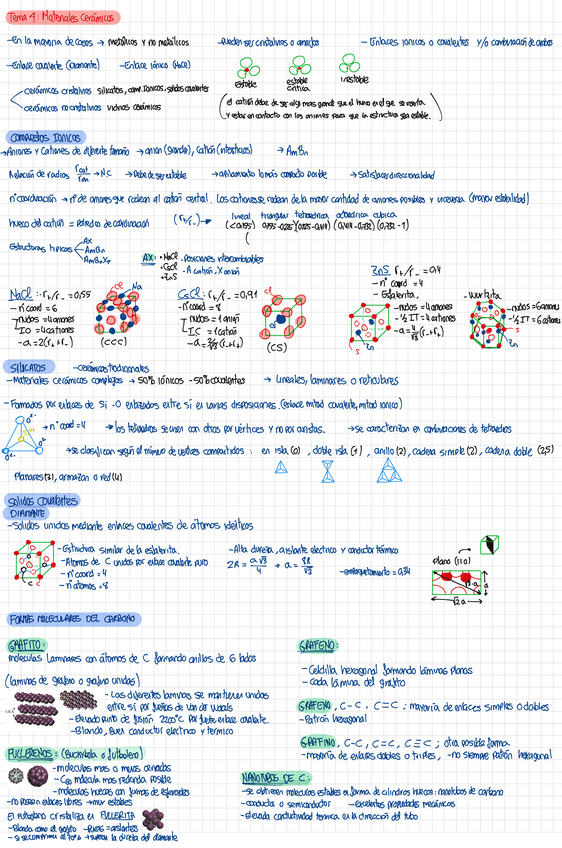 Tema 4: Materiales Cerámicos
-En la mayoria de casos → metálicos y no metálicos -Pueden ser cristalinos o amorfos - Enlaces ionicos o covalentes y/o combinación de ambos
-Enlace covalente (Diamante) -Enlace iónico (NaCl)
estable estable crítica inestable
cerámicos cristalinos silicatos, comp. ionicos, solidos covalentes
cerámicos no cristalinos vidrios cerámicos
el catión debe de ser algo mas grande que el hueco en el que se inserta
y estar en contacto con los aniones para que la estructura sea estable.
Compuestos Ionicos
→Aniones y Cationes de diferente tamaño → anion (grande), catión (intersticios) → AmBn
Relación de radios rcat/ran → N.C → Debe de ser estable → Apilamiento lo más compacto posible → Satisfacer direccionalidad
nº coordinación → nº de aniones que rodean al catión central. Los cationes se rodean de la mayor cantidad de aniones posibles y viceversa (mayor estabilidad)
hueco del catión = Poliedro de coordinación (r+/r-) → lineal triangular tetraedrica octaedrica cubica
(<0.155) 0.155-0.225 (0.225-0.414) (0.414-0.732) (0.732-1)
Estructuras tipicas AX AmBn AmBnXp
AX: • NaCl . Posiciones intercambiables
• CsCl - A catión, X anión
• ZnS
NaCl: r+/r- = 0,55
- nº coord = 6
nudos = 4 aniones
IO = 4 cationes
- a = 2(r+ + r-)
Cl Na
(CCC)
CsCl: r+/r- = 0,91
- nº coord = 8
nudos = 1 anión
IC = 1 catión
- a = 2/√3 (r+ + r-)
Cl Cs
(CS)
ZnS r+/r- = 0,4
- nº coord = 4
- Esfalerita,
- nudos = 4 aniones
- ½ IT = 4 cationes
- a = 4/√3 (r+ + r-)
S Zn
- Wurtzita
- nudos = 6 aniones
- ½ IT = 6 cationes
S Zn
SILICATOS -cerámicos tradicionales
-Materiales cerámicos complejos → 50% iónicos -50% covalentes → Lineales, laminares o reticulares
-Formados por enlaces de Si -O enlazados entre sí en varias disposiciones. (enlace mitad covalente, mitad ionico)
→ nº coord = 4 → los tetraedros se unen con otros por vértices y no por aristas. → se caracterizan en combinaciones de tetraedros
→ se clasifican según el número de vertices compartidos : en isla (0) , doble isla (1) , anillo (2), cadena simple (2), cadena doble (2,5)
Planares (3), armazon o red (4)
Solidos covalentes
DIAMANTE
-Solidos unidos mediante enlaces covalentes de átomos identicos
- Estructura similar de la esfalerita.
- Atomos de C unidos por enlace covalente puro
- nº coord = 4
- nº atomos = 8
-Alta dureza, aislante electrico y conductor térmico
2R = a√3/4 → a = 8R/√3 -empaquetamiento = 0,34
Plano (110)
a
√2 a
FORMAS MOLECULARES DEL CARBONO
GRAFITO:
moleculas laminares con átomos de C formando anillos de 6 lados
(laminas de grafeno o grafino unidas)
- Las diferentes laminas se mantienen unidas
entre si por fuerzas de Van der Waals
-Elevado punto de fusión 2200ºC por fuerte enlace covalente.
-Blando, buen conductor electrico y termico
FULLERENOS: (Buckybola o futboleno)
-moleculas mas o menos cerradas
- C60 molécula mas redonda posible
-moleculas huecas con formas de esferoides
-no poseen enlaces libres → muy estables
El futboleno cristaliza en FULLERITA
-Blanda como el grafito -Puros = aislantes
- si se comprime al 70% → supera la dureza del diamante
GRAFENO:
- Celdilla hexagonal formando láminas planas
- cada lámina del grafito
GRAFENO, C-C, C=C ; mayoría de enlaces simples o dobles
- Patrón hexagonal
GRAFINO, C-C, C=C, C≡C ; otra posible forma
-mayoría de enlaces dobles o triples, -no siempre patrón hexagonal
NANOTUBOS DE C:
-se obtienen moleculas estables en forma de cilindros huecos: nanotubos de carbono
-conductor o semiconductor - Excelentes propiedades mecánicas
-Elevada conductividad termica en la dirección del tubo